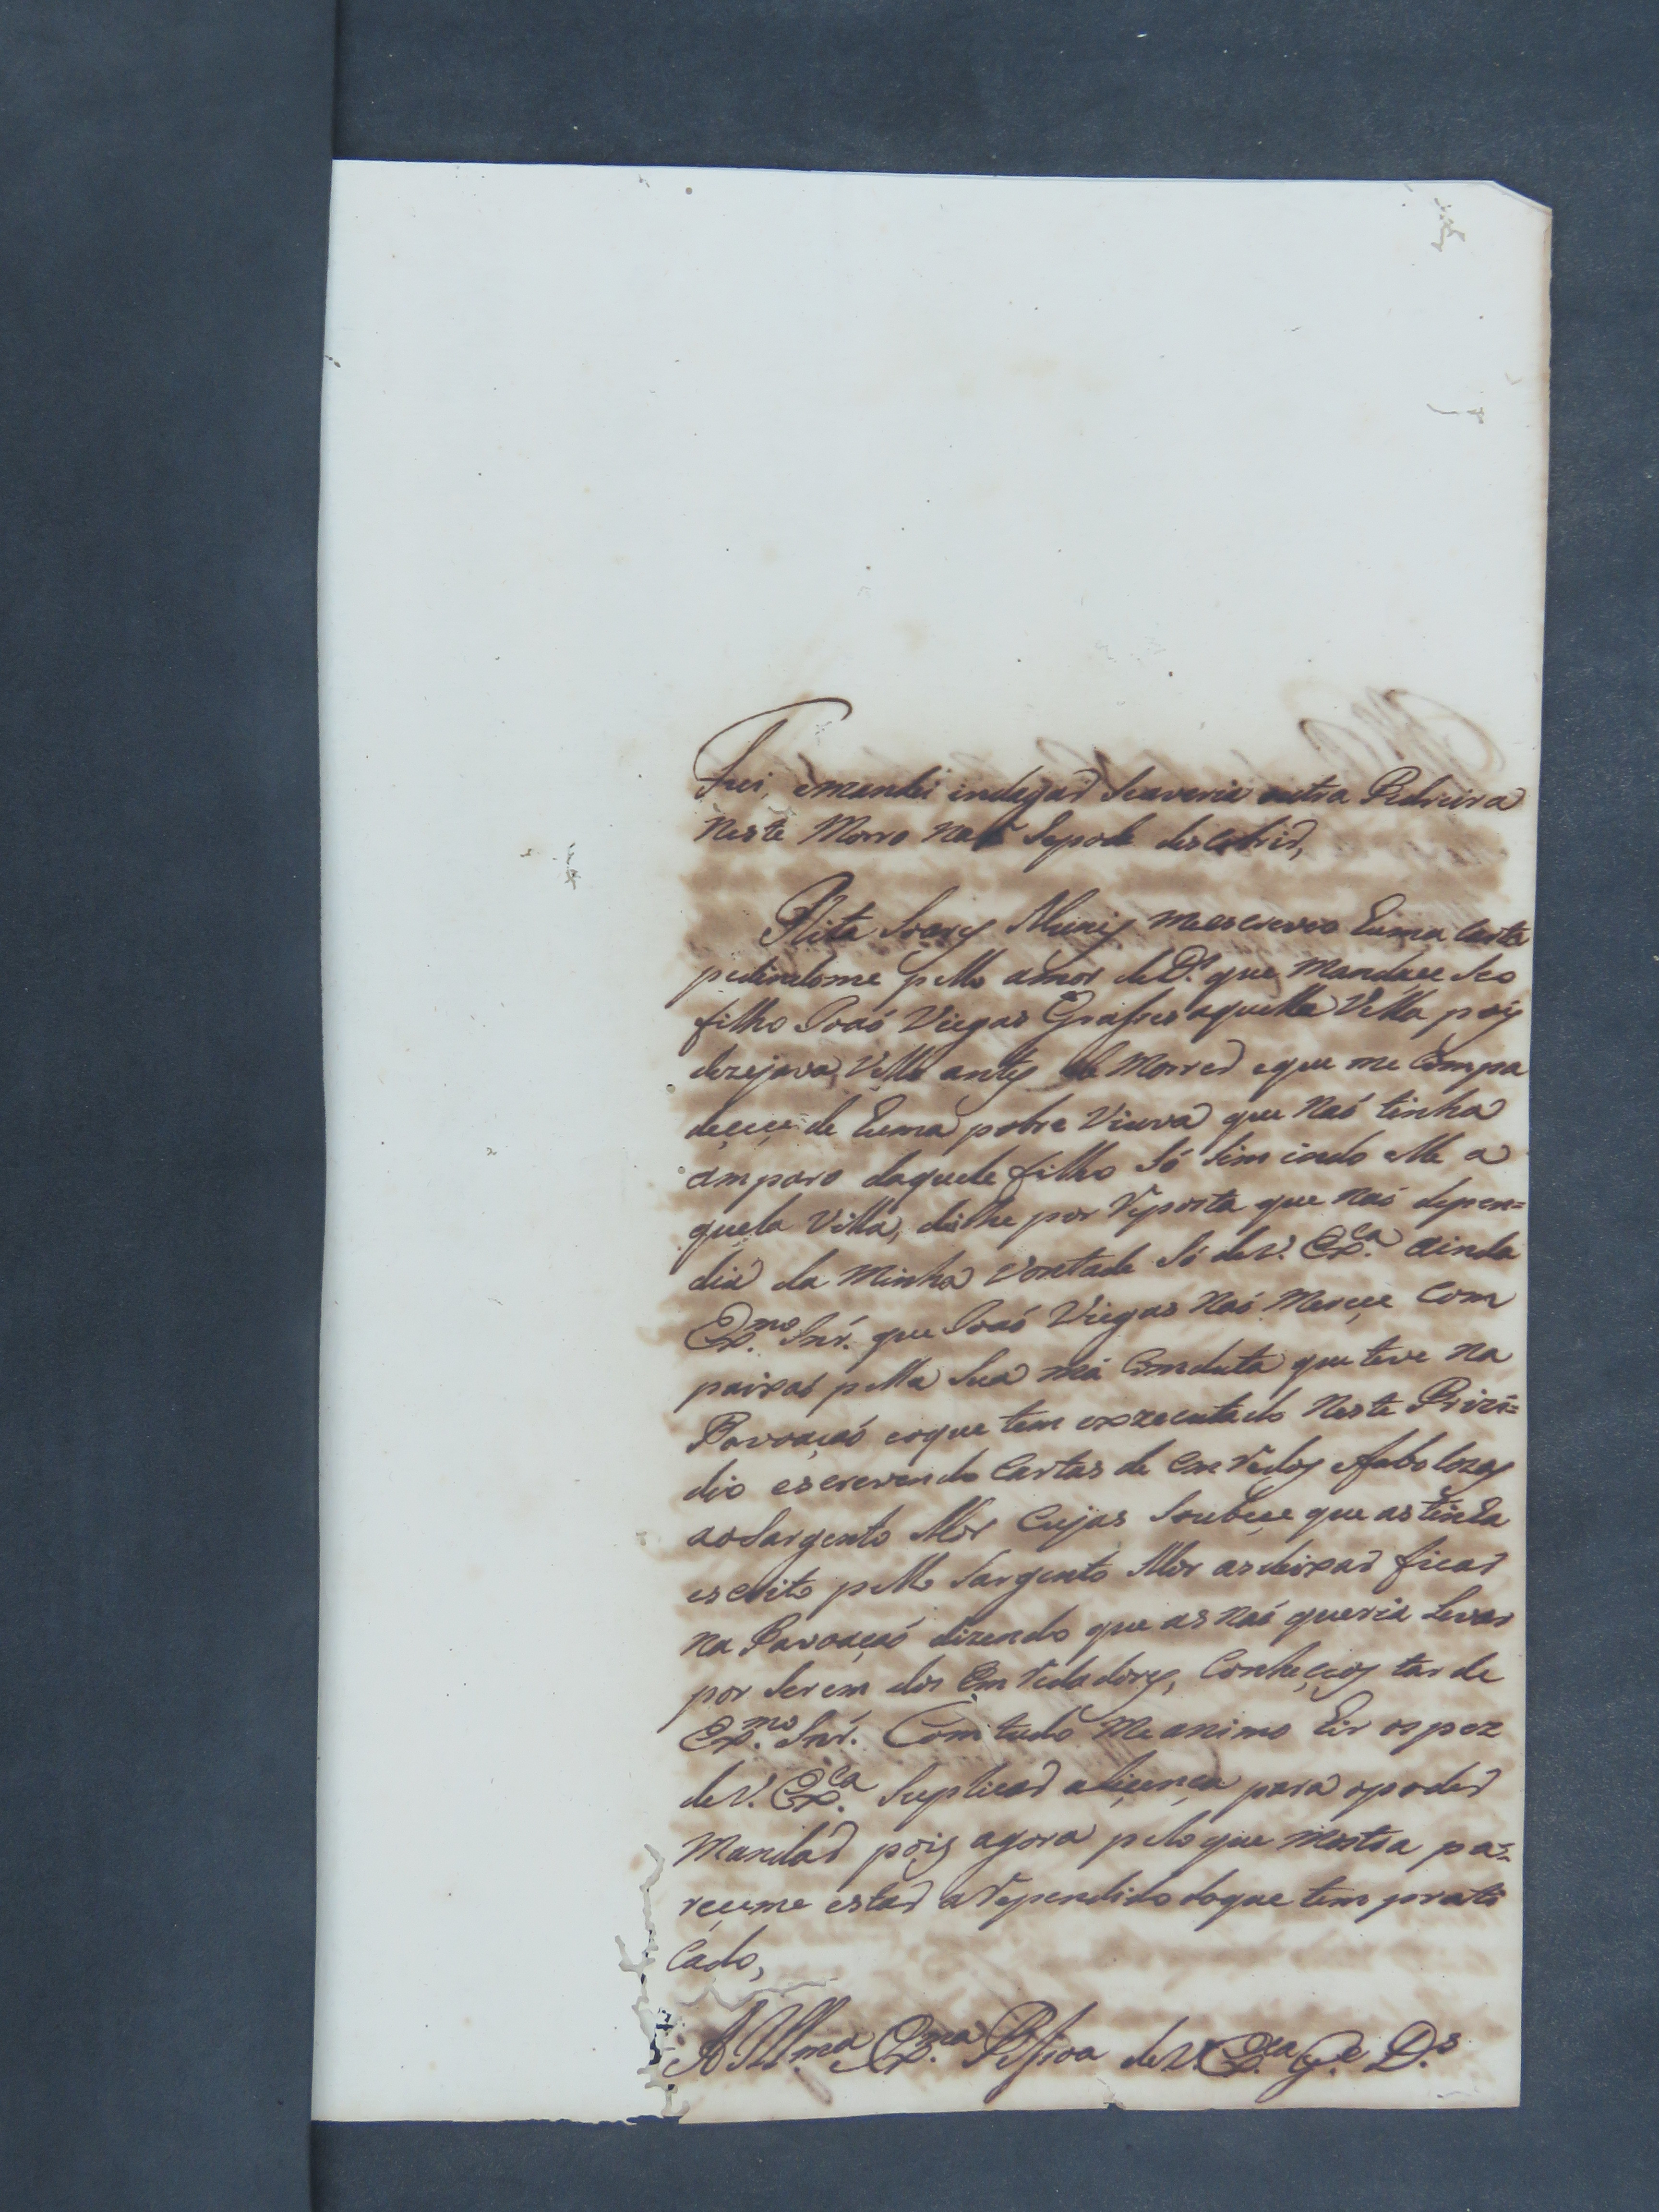 Fui, emandei indegar Seaveria outra Pedreira
Neste Morro Naõ Sepode descobrir,
Rita Soares Muniz meescreveo huma Carta
pedindome pello amor deDs. que Mandace Seo
filho Joaó Viegas aquella Villa pois
dezejava Vello antes de Morrer eque me Compa
deçece de huma pobre Viuva que Naó tinha
amparo daquele filho Só Sim indo elle a
quela Villa, dislhe por Reposta que Naó depen=
dia da Minha Vontade Só deV. Exca. ainda
Exmo. Snr. que Joaó Viegas Naó Mereçe Com
paixaó pella Sua má Conduta que teve Na
Povoaçaó eoque tem exzecutado Neste Prizi=
dio escrevendo Cartas de emRedos efabolozas
aoSargento Mór Cujas Soubeçe que astinha
escrito pello Sargento Mór asdeixar ficar
Na Povoaçaó dizendo que asNaó queria Levar
por Serem dos EmRedadores, Conheçeos tarde
Exmo. Snr. Com tudo Me animo hir os pez
deV. Exca. Suplicar aliçença para opoder
Mandar pois agora peloque Mostra pa=
reçeme estar aRependido doque tem prati
Cado,
A Illma. Exma. Pessoa deV. Exca. Ge. Ds.